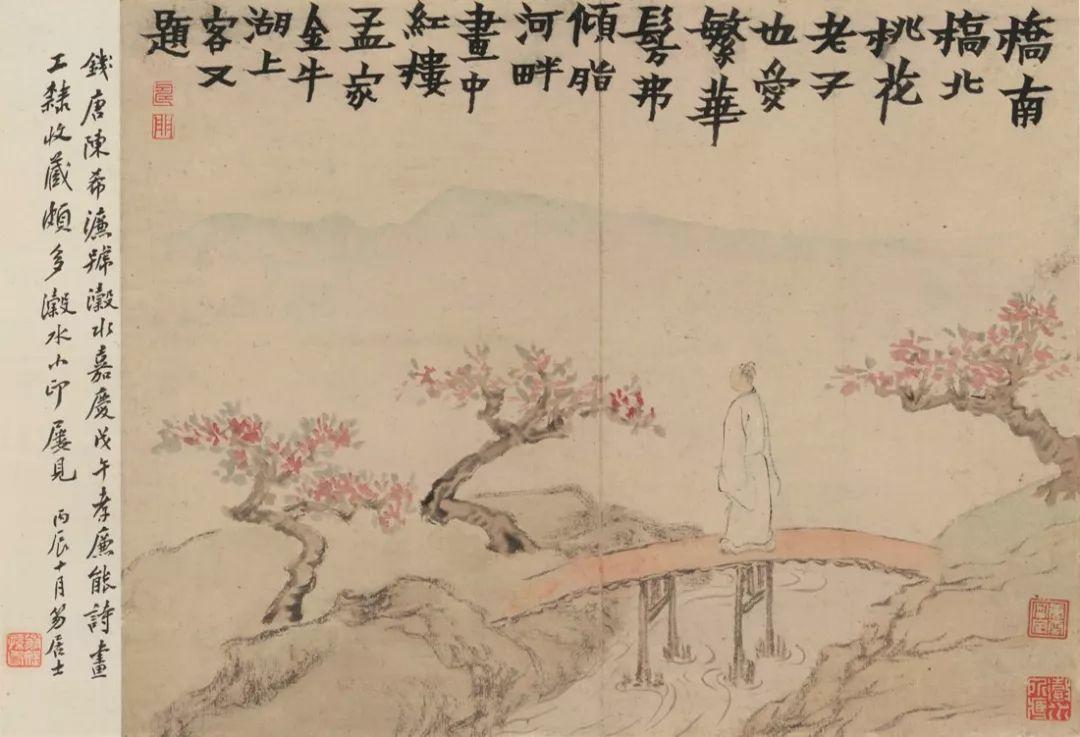 橋南
槁北
桃花
老子
也愛
繁華
髣弗
傾脂
河畔
畫中
紅樓
孟家
金牛
湖上
客又
題
錢唐陳希濂號瀔水嘉慶戊午孝廉能詩畫
工隸收藏頗多瀔水小印屢見 丙辰十月笏居士
瀔水所藏